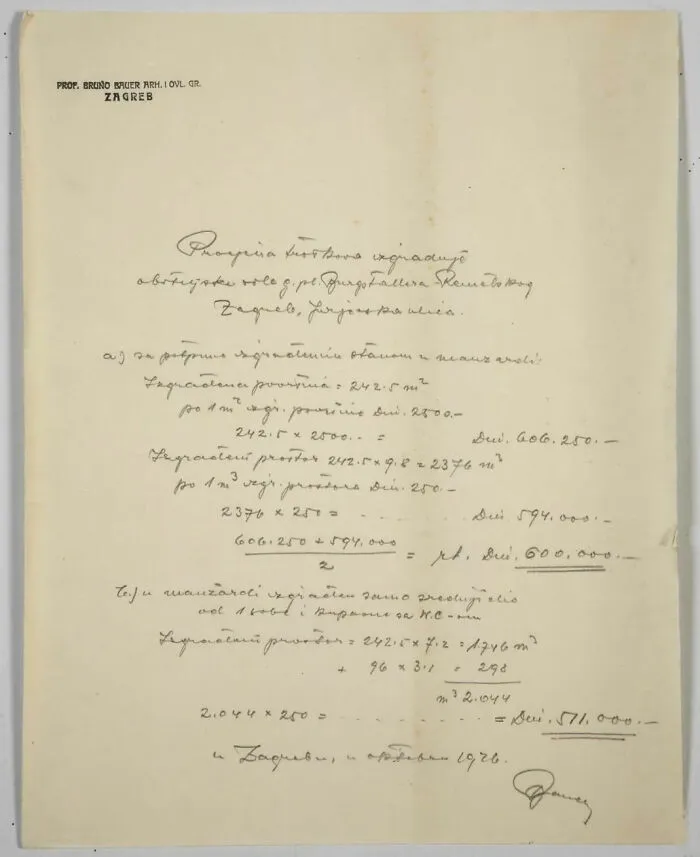 PROF. BRUNO BAUER ARH. I OVL. GR.
ZAGREB
Procjena troškova izgradnje
obiteljske vile g. pl. Burgstallera-Remetskog
Zagreb, Jurjevska ulica.
a.) sa potpuno izgrađenim stanom u manzardi:
Izgrađena površina = 242.5 m²
po 1 m² izgr. površine Din. 2500.-
242.5 x 2500.- = Din. 606.250.-
Izgrađeni prostor 242.5 x 9.8 = 2376 m³
po 1 m³ izgr. prostora Din. 250.-
2376 x 250 = . . . . . Din 594.000.-
606.250 + 594.000
2
= Din. 600.000.-
b.) u manzardi izgrađen samo srednji dio
od 1 sobe i kupaone sa W.C-om
Izgrađeni prostor = 242.5 x 7.2 = 1.746 m³
+ 96 x 3.1 = 298
m³ 2.044
2.044 x 250 = . . . . . . . . = Din. 511.000.-
u Zagrebu, u oktobru 1926.
Bauer